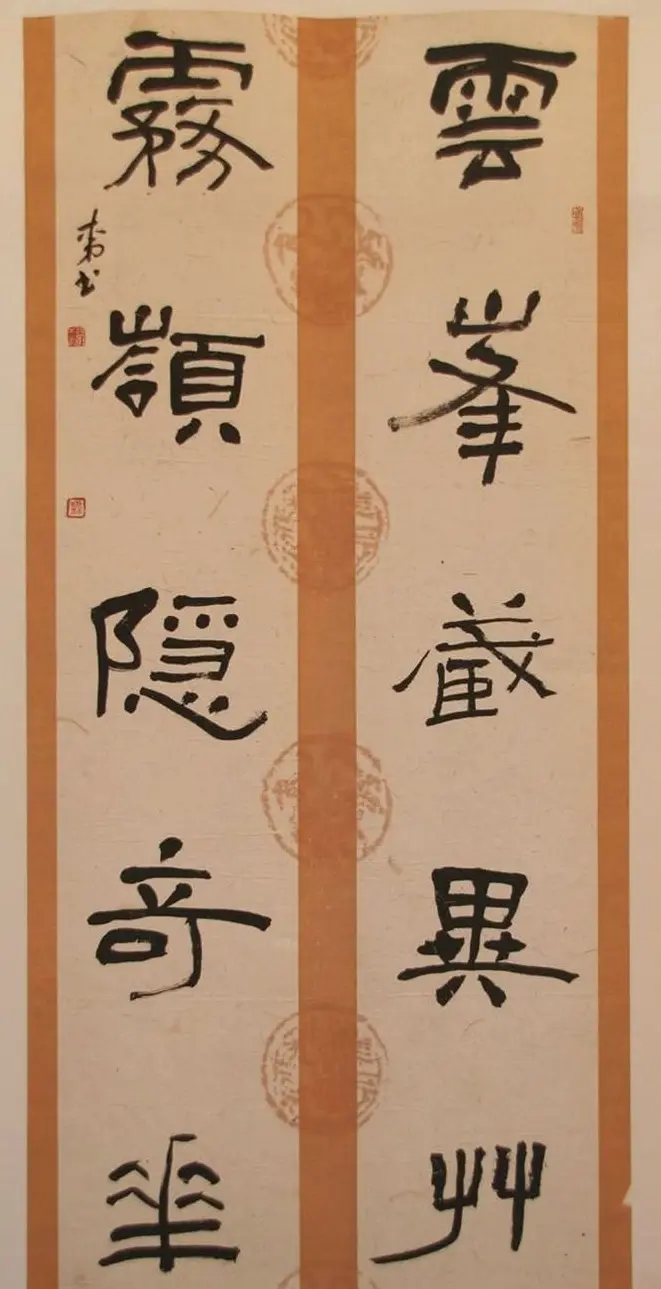 雲峯藏異艸
霧嶺隱奇華